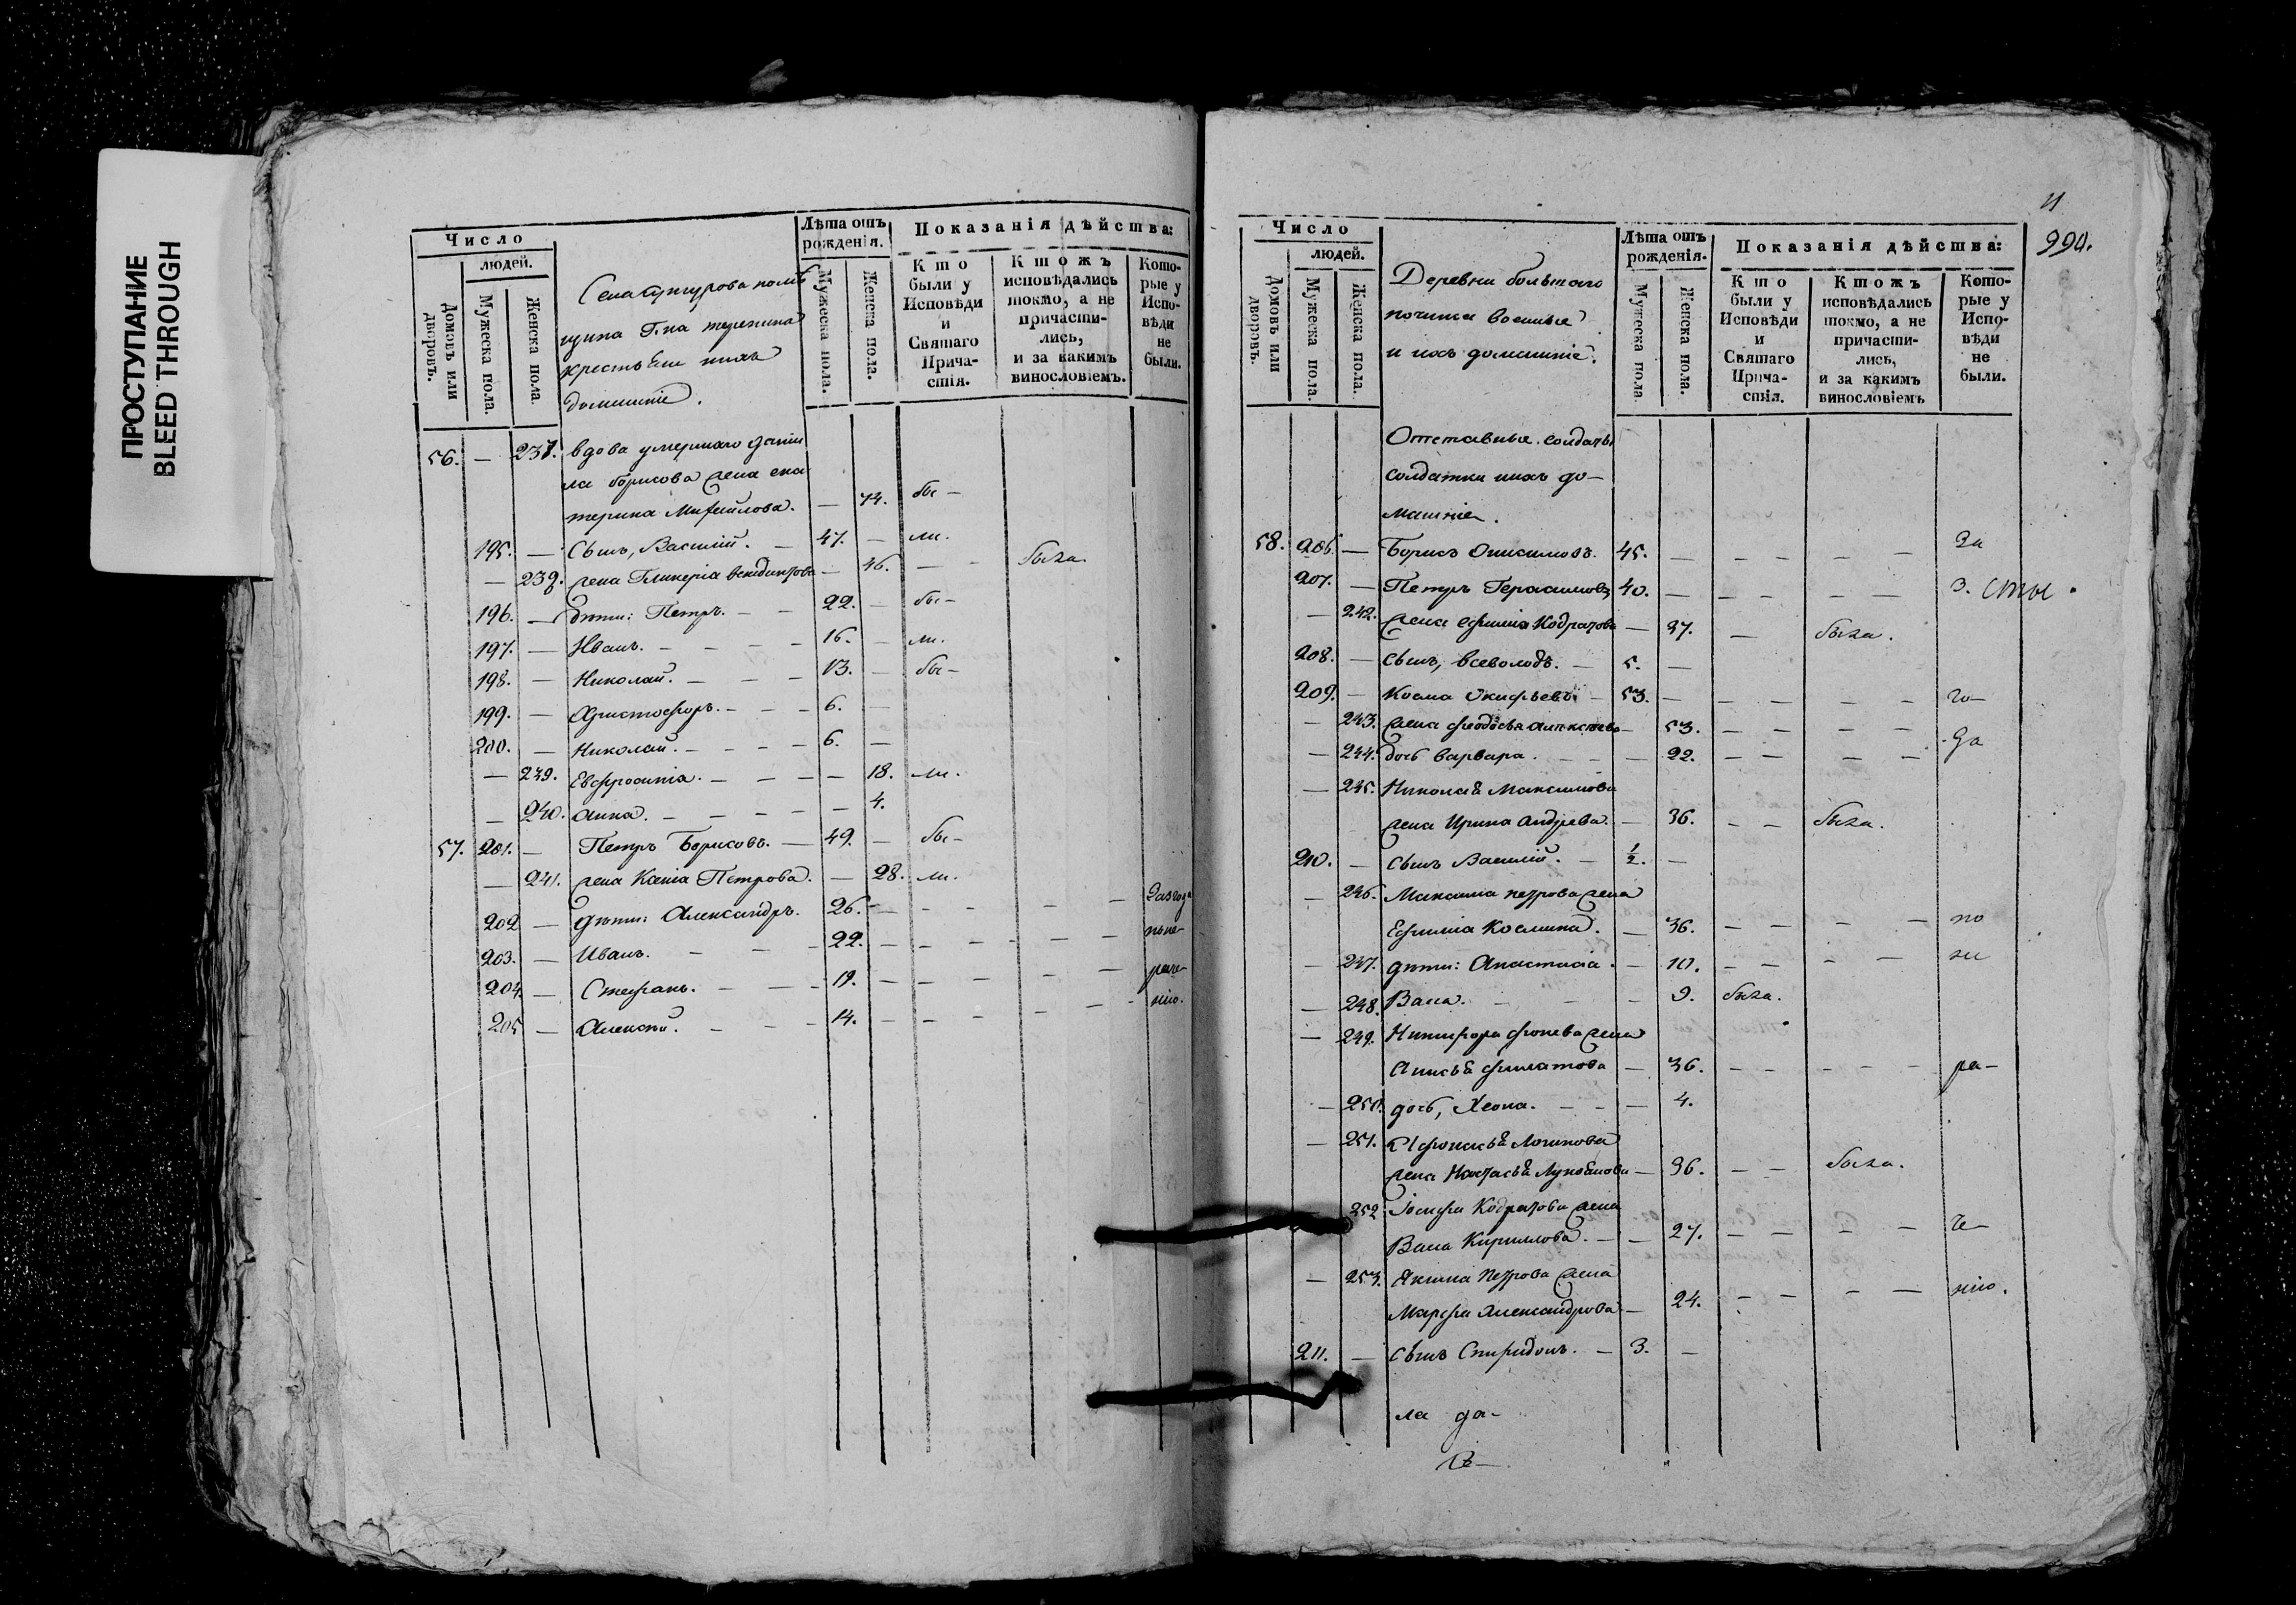 ПРОСТУПАНИЕ
BLEED THROUGH
Число
людей.
Домовъ или дворовъ.
Мужеска пола.
Женска пола.
Села помѣ
щика Г.на
крестьяне ихъ
домашнiе.
Лѣта отъ рожденiя.
Мужеска пола.
Женска пола.
Показанiя дѣйства:
Кто были у Исповѣди и Святаго Прича-стiя.
Ктожъ исповѣдались токмо, а не причасти-лись, и за какимъ винословiемъ.
Кото-рые у Испо-вѣди не были.
56. — 237. вдова умершаго данiи
ла борисова жена ека
терина Михайлова. — 74. бы —
195. — Сынъ, Василiй. — 47. — ли.
— 238. жена Гликерiя — 46. — — была.
196. — дѣти: Петръ. — — 22. — бы —
197. — Иванъ. — — — — 16. — ли.
198. — Николай. — — — 13. — бы —
199. — Христофоръ. — — — 6. —
200. — Николай. — — — — 6. —
— 239. Евфросинiя. — — — — 18. ли.
— 240. Анна. — — — — — 4.
57. 201. — Петръ Борисовъ. — 49. — бы —
— 241. жена Ксенiя Петрова. — 28. ли.
202 — дѣти: Александръ. 26. — — — — —
203. — Иванъ. — — — 22. — — — — — —
204. — Стефанъ. — — — 19. — — — — —
205 — Алексѣй. — — — 14. — — — — — — нiю.
11
990.
Число
людей.
Домовъ или дворовъ.
Мужеска пола
Женска пола.
Деревни большаго
починка военные
и ихъ домашнiе.
Лѣта отъ рожденiя.
Мужеска пола
Женска пола.
Показанiя дѣйства:
Кто были у Исповѣди и Святаго Прича-стiя.
Ктожъ исповѣдались токмо, а не причасти-лись, и за какимъ винословiемъ
Кото-рые у Испо-вѣди не были.
Отставные солдаты
солдатки ихъ до —
машнiе.
58. 206. — Борисъ Онисимовъ. 45. — — — — — За
207. — Петръ Герасимовъ 40. — — — — —
— 242. жена Ефимiя Кодратова — 37. — была.
208. — Сынъ, Всеволодъ. — 5. —
209. — Косма — 53. — — — — — го —
— 243. жена феодосья алексѣева — 53. — — — —
— 244. дочь варвара. — — — 22. — — — — да
— 245. Николая Максимова
жена Ирина Андрева. — 36. — — была.
210. — Сынъ Василiй. — ½. —
— 246. Максима петрова жена
Ефимiя Космина. — 36. — — — — по
— 247. дѣти: Анастасiя. — 10. — — — — не
— 248. Васса. — — — 9. была.
— 249. Никифора жена
Анисья филатова — 36. — — — — — ра —
— 250. дочь, — — — 4.
— 251. Афонасья Логинова
жена Настасья — 36. — — была.
— 252. Iосифа Кодратова жена
Васса Кирилова. — — 27. — — — — че —
— 253. Якима петрова жена
Марфа Александрова — 24. — — — — нiю.
211. — Сынъ Спиридонъ. — 3. —
ла да —